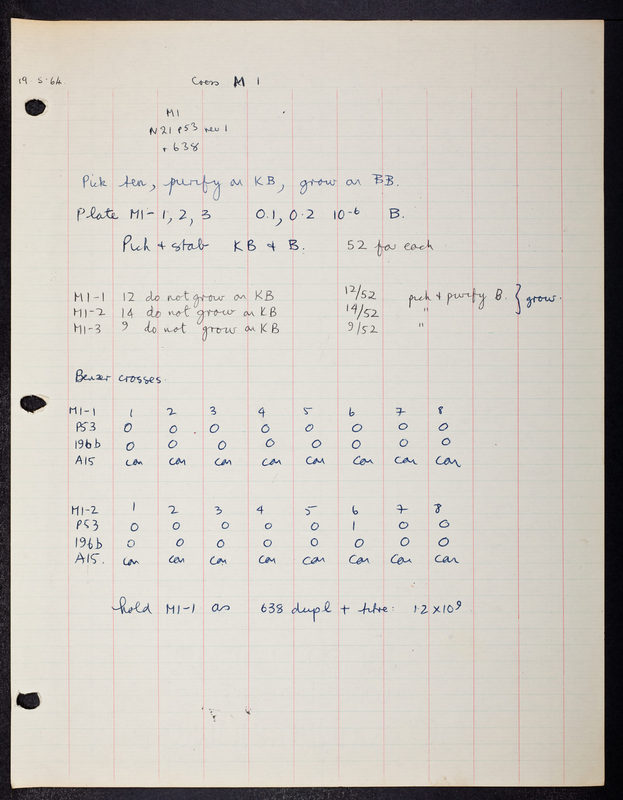 19.5.64. Cross M 1
M1
N21 P53 rev 1
r 638
Pick ten, purify on KB, grow on BB.
Plate M1-1, 2, 3 0.1, 0.2 10-6 B.
Pick + stab KB & B. 52 for each
M1-1 12 do not grow on KB 12/52 pick + purify B. } grow.
M1-2 14 do not grow on KB 14/52 "
M1-3 9 do not grow on KB 9/52 "
Benzer crosses.
M1-1 1 2 3 4 5 6 7 8
P53 0 0 0 0 0 0 0 0
196b 0 0 0 0 0 0 0 0
A15 con con con con con con con con
M1-2 1 2 3 4 5 6 7 8
P53 0 0 0 0 0 1 0 0
196b 0 0 0 0 0 0 0 0
A15. con con con con con con con con
hold M1-1 as 638 dupl + titre: 1.2 x 10⁹